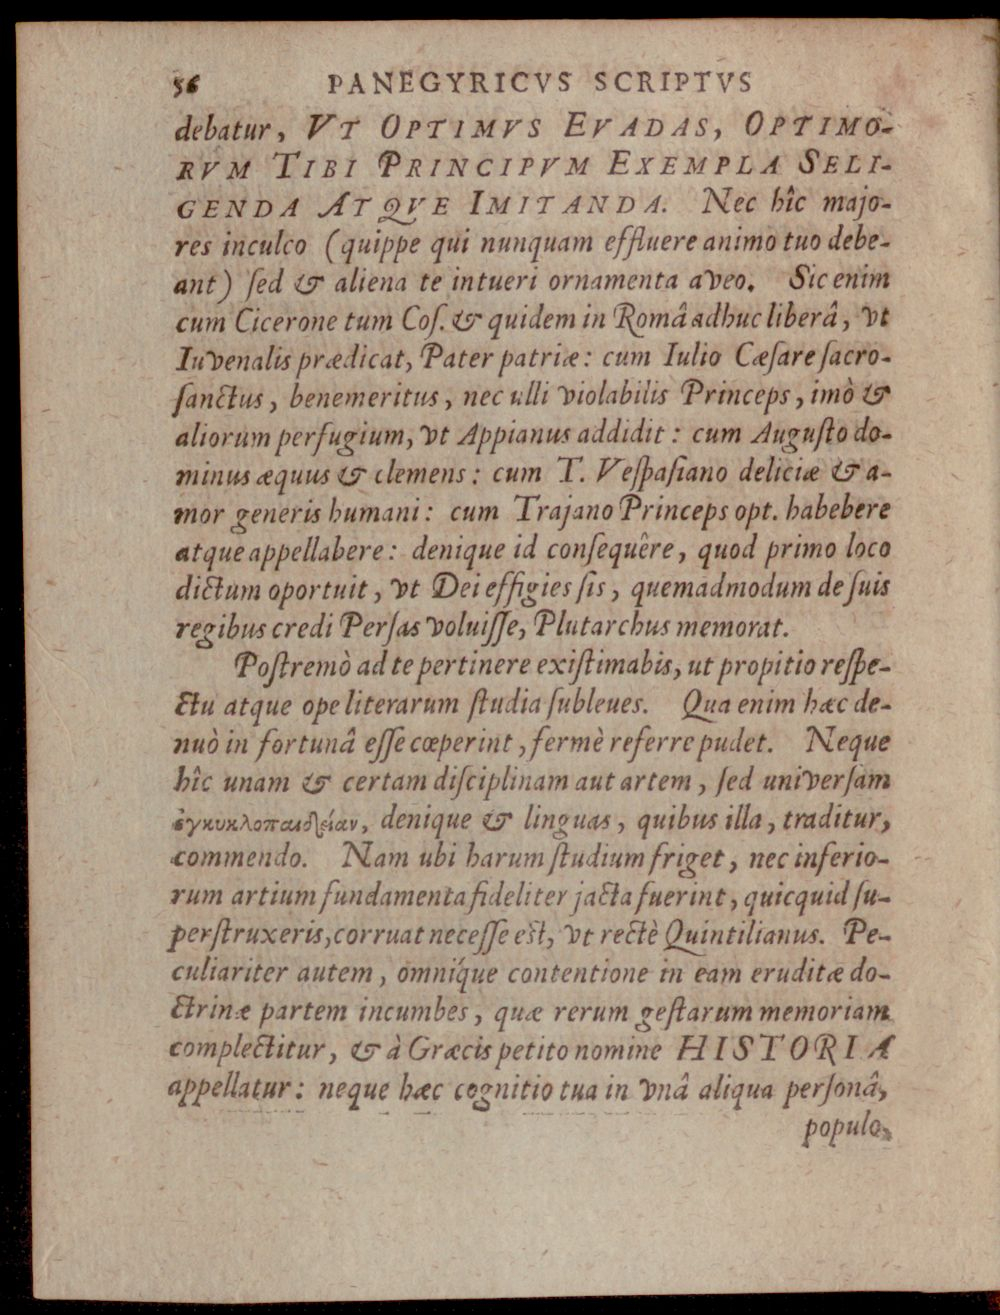 56 PANEGYRICVS SCRIPTVS
debatur, VT OPTIMVS EVADAS, OPTIMO-
RVM TIBI PRINCIPVM EXEMPLA SELI-
GENDA ATQVE IMITANDA. Nec hîc majo-
res inculco (quippe qui nunquam effluere animo tuo debe-
ant) ſed & aliena te intueri ornamenta aveo. Sic enim
cum Cicerone tum Coſ. & quidem in Româ adhuc liberâ, vt
Iuvenalis prædicat, Pater patriæ: cum Iulio Cæſare ſacro-
ſanctus, benemeritus, nec ulli violabilis Princeps, imò &
aliorum perfugium, vt Appianus addidit: cum Auguſto do-
minus æquus & clemens: cum T. Veſpaſiano deliciæ & a-
mor generis humani: cum Trajano Princeps opt. habebere
atque appellabere: denique id conſequêre, quod primo loco
dictum oportuit, vt Dei effigies ſis, quemadmodum de ſuis
regibus credi Perſas voluiſſe, Plutarchus memorat.
Poſtremò ad te pertinere exiſtimabis, ut propitio reſpe-
ctu atque ope literarum ſtudia ſubleues. Qua enim hæc de-
nuò in fortunâ eſſe cœperint, fermè referre pudet. Neque
hîc unam & certam diſciplinam aut artem, ſed univerſam
ἐγκυκλοπαιδείαν, denique & linguas, quibus illa, traditur,
commendo. Nam ubi harum ſtudium friget, nec inferio-
rum artium fundamenta fideliter jacta fuerint, quicquid ſu-
perſtruxeris, corruat neceſſe eſt, vt rectè Quintilianus. Pe-
culiariter autem, omníque contentione in eam eruditæ do-
ctrinæ partem incumbes, quæ rerum geſtarum memoriam
complectitur, & à Græcis petito nomine HISTORIA
appellatur: neque hæc cognitio tua in vnâ aliqua perſonâ,
populo,